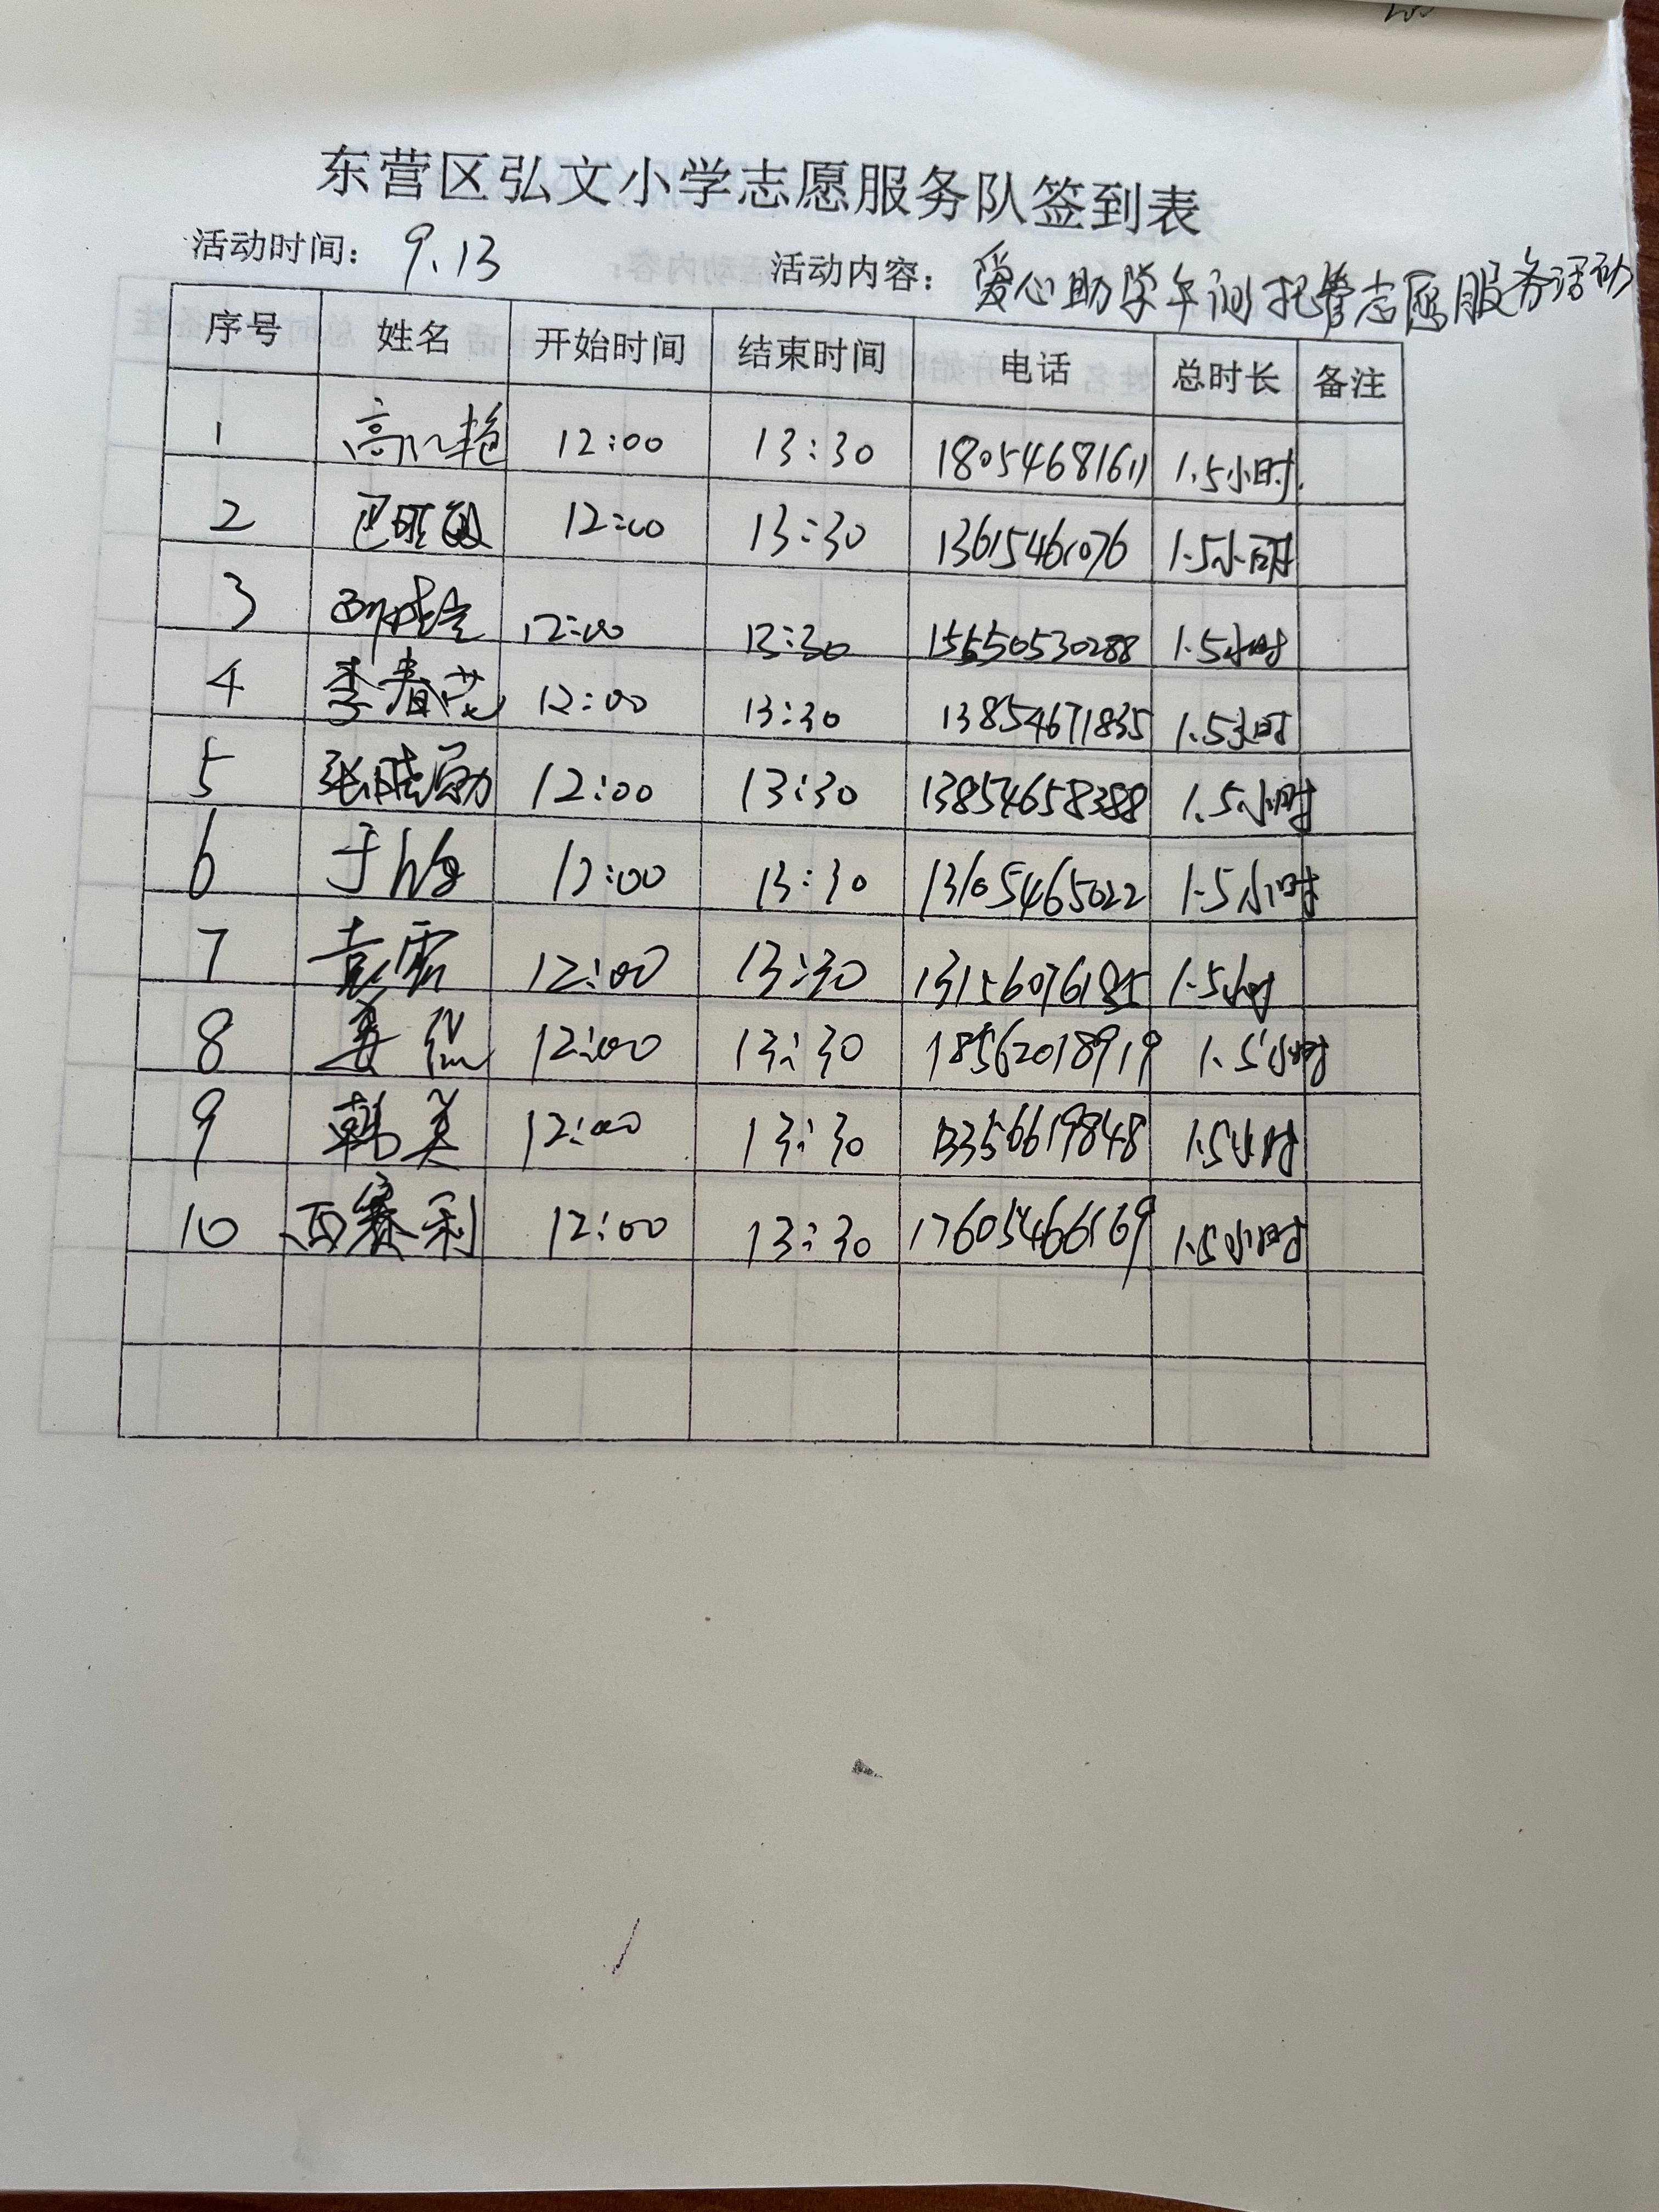 东营区弘文小学志愿服务队签到表
活动时间： 9.13 活动内容： 爱心助学午间托管志愿服务活动
序号 姓名 开始时间 结束时间 电话 总时长 备注
1 12:00 13:30 18054681611 1.5小时.
2 12:00 13:30 13615461076 1.5小时
3 12:00 13:30 15550530288 1.5小时
4 李春花 12:00 13:30 13854671835 1.5小时
5 张晓勋 12:00 13:30 13854658388 1.5小时
6 于 12:00 13:30 13105465022 1.5小时
7 袁雷 12:00 13:30 13156076185 1.5小时
8 姜红 12:00 13:30 18562018919 1.5小时
9 韩美 12:00 13:30 13356619848 1.5小时
10 西赛利 12:00 13:30 17605466169 1.5小时